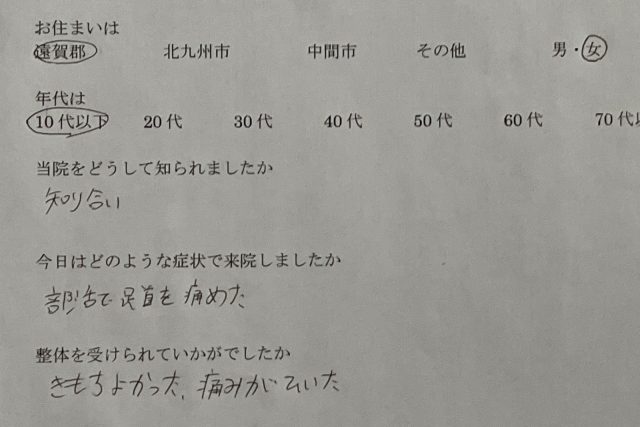 お住まいは
遠賀郡 北九州市 中間市 その他 男・女
年代は
10代以下 20代 30代 40代 50代 60代 70代以
当院をどうして知られましたか
知り合い
今日はどのような症状で来院しましたか
部活で足首を痛めた
整体を受けられていかがでしたか
きもちよかった、痛みがひいた